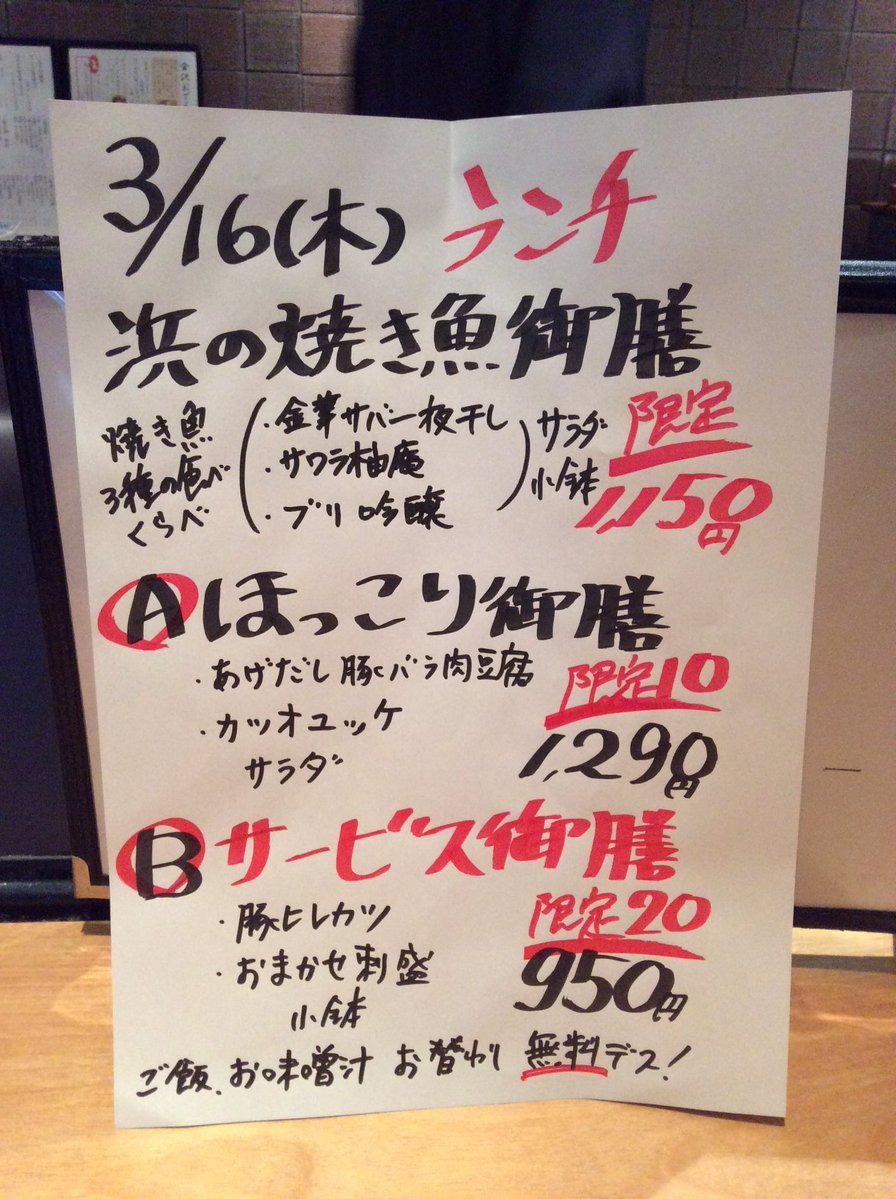 3/16(木) ランチ
浜の焼き魚御膳
焼き魚
3種の食べ
くらべ
・金華サバ一夜干し
・サワラ柚庵
・ブリ吟醸
サラダ
小鉢
限定
1,150円
Aほっこり御膳
・あげだし豚バラ肉豆腐
・カツオユッケ
サラダ
限定10
1,290円
Bサービス御膳
・豚ヒレカツ
・おまかせ刺盛
小鉢
限定20
950円
ご飯、お味噌汁 お替わり 無料デス!